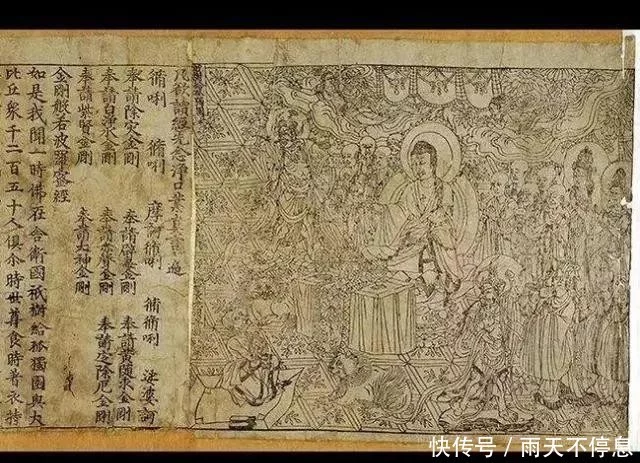 凡欲讀經先念淨口業真言一遍
脩唎 脩唎 摩訶脩唎 脩脩唎 娑婆訶
奉請除灾金剛 奉請辟毒金剛 奉請黃隨求金剛
奉請白淨水金剛 奉請赤聲金剛 奉請定除厄金剛
奉請紫賢金剛 奉請大神金剛
金剛般若波羅蜜經
如是我聞一時佛在舍衛國祇樹給孤獨園與大
比丘衆千二百五十人俱尒時世尊食時著衣持
快传号 / 雨天不停息